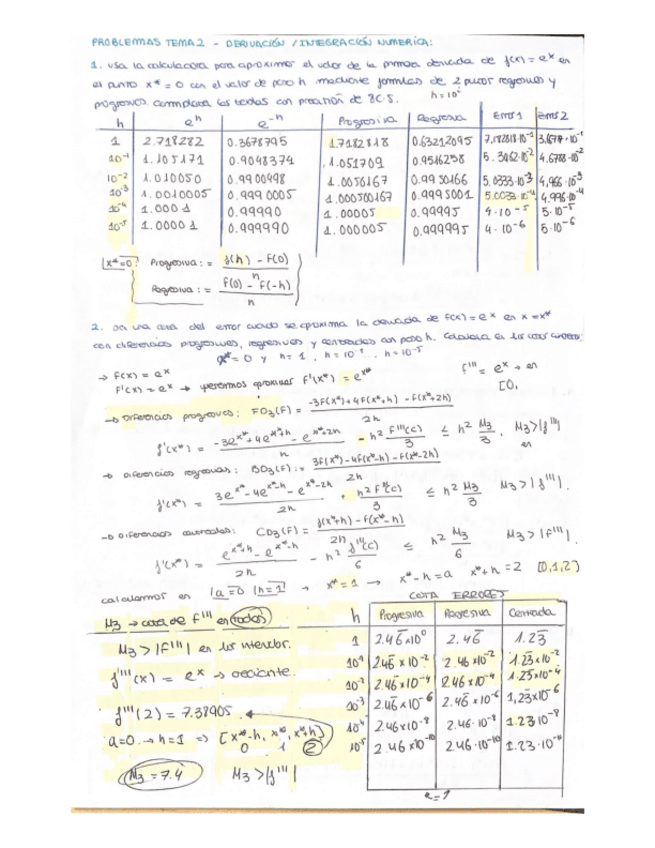 PROBLEMAS TEMA 2 - DERIVACIÓN / INTEGRACIÓN NUMERICA:
1. Usa la calculadora para aproximar el valor de la primera derivada de f(x) = e^x en
el punto x* = 0 con el valor de paso h mediante formulas de 2 puntos regresivos y
progresivos
las tablas con precisión de 8C.S.
h | e^h | e^-h | Progresiva | Regresiva | Error 1 | Error 2
1 | 2.718282 | 0.3678795 | 1.7182818 | 0.63212095 | 7,182818·10^-1 | 3.6679·10^-1
10^-1 | 1.105171 | 0.9048374 | 1.051709 | 0.9516258 | 5.3062·10^-2 | 4.6788·10^-2
10^-2 | 1.010050 | 0.9900498 | 1.0050167 | 0.9950166 | 5.0333·10^-3 | 4,966·10^-3
10^-3 | 1.0010005 | 0.9990005 | 1.000500167 | 0.9995001 | 5.0033·10^-4 | 4.996·10^-4
10^-4 | 1.0001 | 0.99990 | 1.00005 | 0.99995 | 4·10^-5 | 5·10^-5
10^-5 | 1.00001 | 0.999990 | 1.000005 | 0.999995 | 4·10^-6 | 5·10^-6
x*=0 Progresiva := (f(h) - f(0)) / h
Regresiva := (f(0) - f(-h)) / h
2. Da una cota del error cuando se aproxima la derivada de f(x) = e^x en x = x*
con diferencias progresivas, regresivas y centradas con paso h. Calcula en los casos
x* = 0 y h = 1, h = 10^-1 ... h = 10^-5
→ F(x) = e^x
F'(x) = e^x → queremos aproximar F'(x*) = e^x*
f''' = e^x → en
[0,
→ Diferencias progresivas: FD3(F) = (-3F(x*) + 4F(x*+h) - F(x*+2h)) / 2h
f'(x*) = (-3e^x* + 4e^x*+h - e^x*+2h) / h - h² F'''(c)/3 ≤ h² M3/3, M3 > |f'''|
en
→ Diferencias regresivas: BD3(F) := (3F(x*) - 4F(x*-h) - F(x*-2h)) / 2h
f'(x*) = (3e^x* - 4e^x*-h - e^x*-2h) / 2h + h² F'''(c)/3 ≤ h² M3/3 M3 > |f'''|.
→ Diferencias centradas: CD3(F) = (f(x*+h) - f(x*-h)) / 2h
f'(x*) = (e^x*+h - e^x*-h) / 2h - h² f'''(c)/6 ≤ h² M3/6 M3 > |f'''|.
calculamos en a=0 h=1 → x* = 1 → x*-h = a x*+h = 2 [0,1,2]
COTA ERRORES
M3 → cota de f''' en todos
h | Progresiva | Regresiva | Centrada
M3 > |f'''| en los interior.
1 | 2.46x10^0 | 2.46 | 1.23
f'''(x) = e^x → creciente.
10^-1 | 2.46x10^-2 | 2.46x10^-2 | 1.23x10^-2
10^-2 | 2.46x10^-4 | 2.46x10^-4 | 1.23x10^-4
f'''(2) = 7.38905
10^-3 | 2.46x10^-6 | 2.46x10^-6 | 1,23x10^-6
a=0 → h=1 => [x*-h, x*, x*+h]
0 1 2
10^-4 | 2.46x10^-8 | 2.46·10^-8 | 1.23 10^-8
10^-5 | 2.46x10^-10 | 2.46·10^-10 | 1.23·10^-10
M3 = 7.4 M3 > |f'''|